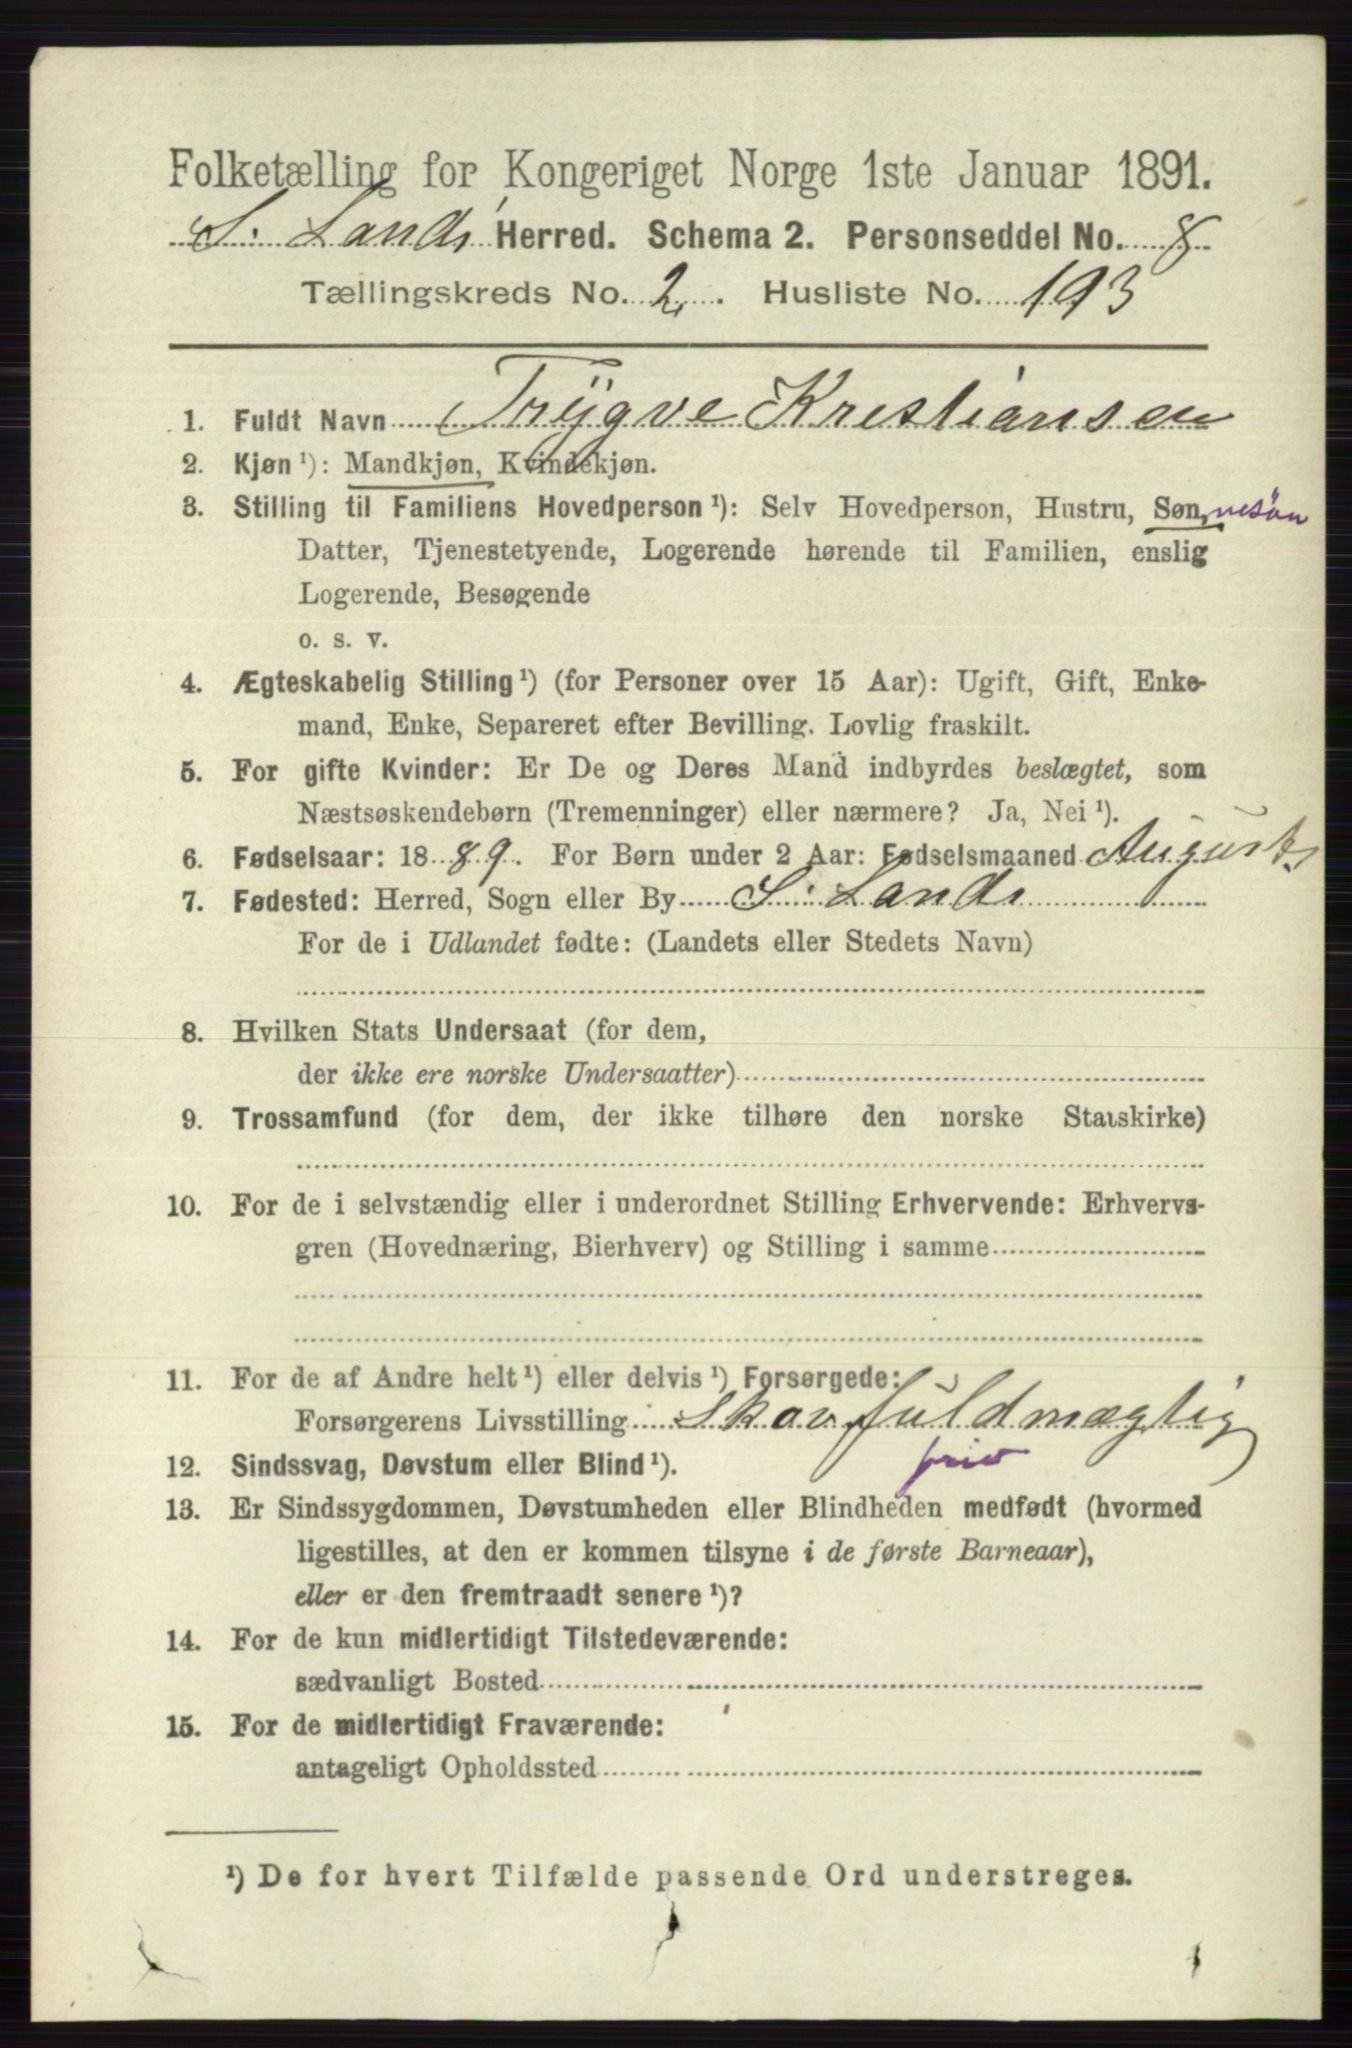 Folketælling for Kongeriget Norge 1ste Januar 1891.
S. Lands Herred. Schema 2. Personseddel No. 8
Tællingskreds No. 2. Husliste No. 193
1. Fuldt Navn Trygve Kristiansen
2. Kjøn ¹): Mandkjøn, Kvindekjøn.
3. Stilling til Familiens Hovedperson ¹): Selv Hovedperson, Hustru, Søn, nesøn
Datter, Tjenestetyende, Logerende hørende til Familien, enslig
Logerende, Besøgende
o. s. v.
4. Ægteskabelig Stilling ¹) (for Personer over 15 Aar): Ugift, Gift, Enke-
mand, Enke, Separeret efter Bevilling. Lovlig fraskilt.
5. For gifte Kvinder: Er De og Deres Mand indbyrdes beslægtet, som
Næstsøskendebørn (Tremenninger) eller nærmere? Ja, Nei ¹).
6. Fødselsaar: 1889. For Børn under 2 Aar: Fødselsmaaned August
7. Fødested: Herred, Sogn eller By S. Lands
For de i Udlandet fødte: (Landets eller Stedets Navn)
8. Hvilken Stats Undersaat (for dem,
der ikke ere norske Undersaatter)
9. Trossamfund (for dem, der ikke tilhøre den norske Statskirke)
10. For de i selvstændig eller i underordnet Stilling Erhvervende: Erhvervs-
gren (Hovednæring, Bierhverv) og Stilling i samme
11. For de af Andre helt ¹) eller delvis ¹) Forsørgede:
Forsørgerens Livsstilling Skovfuldmægtig
priv
12. Sindssvag, Døvstum eller Blind ¹).
13. Er Sindssygdommen, Døvstumheden eller Blindheden medfødt (hvormed
ligestilles, at den er kommen tilsyne i de første Barneaar),
eller er den fremtraadt senere ¹)?
14. For de kun midlertidigt Tilstedeværende:
sædvanligt Bosted
15. For de midlertidigt Fraværende:
antageligt Opholdssted
¹) De for hvert Tilfælde passende Ord understreges.